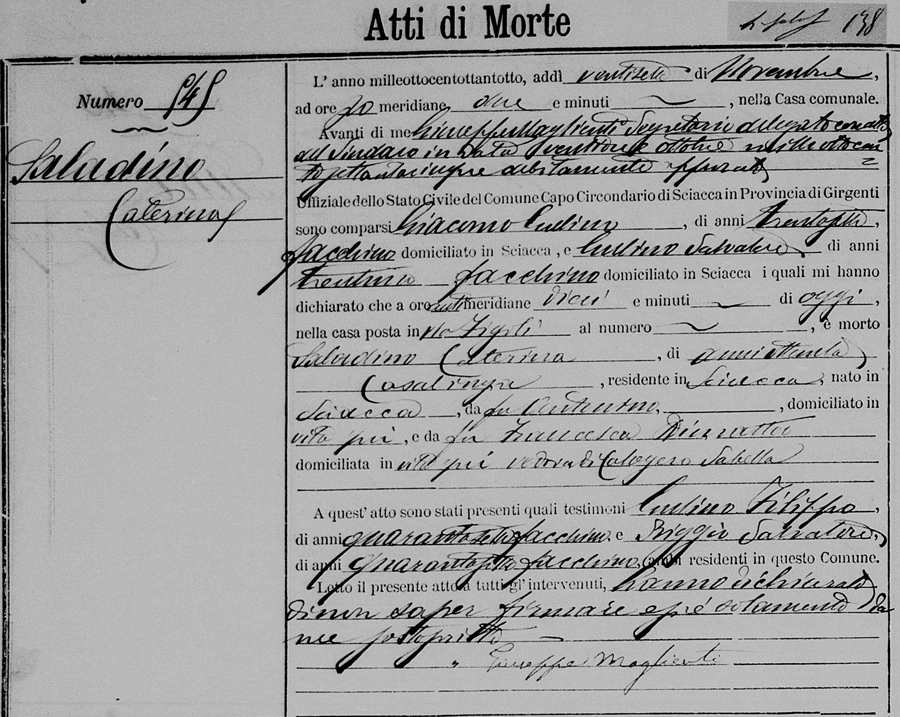 Atti di Morte
138
Numero 545
Saladino
Caterina
L' anno milleottocentottantotto, addì ventisette di Novembre,
ad ore po meridiane due e minuti ~ , nella Casa comunale.
Avanti di me Giuseppe Maglienti Segretario delegato con atto
del Sindaco in data ottobre milleottocen
to ottantacinque debitamente approvato
Uffiziale dello Stato Civile del Comune Capo Circondario di Sciacca in Provincia di Girgenti
sono comparsi Giacomo Gulino , di anni trentotto,
facchino domiciliato in Sciacca, e Gulino Salvatore, di anni
trentuno facchino domiciliato in Sciacca i quali mi hanno
dichiarato che a ore anti meridiane dieci e minuti ~ di oggi,
nella casa posta in al numero ~ , è morto
Saladino Caterina , di anni ottanta,
Casalinga , residente in Sciacca, nato in
Sciacca , da fu Antonino , domiciliato in
vita qui, e da fu Francesca
domiciliata in vita qui vedova di Calogero Sabella
A quest' atto sono stati presenti quali testimoni Gulino Filippo,
di anni quarantasette facchino e Riggio Salvatore,
di anni quarantotto facchino, ambi residenti in questo Comune.
Letto il presente atto a tutti gl' intervenuti, hanno dichiarato
di non saper firmare e si è solamente da
me sottoscritto
Giuseppe Maglienti